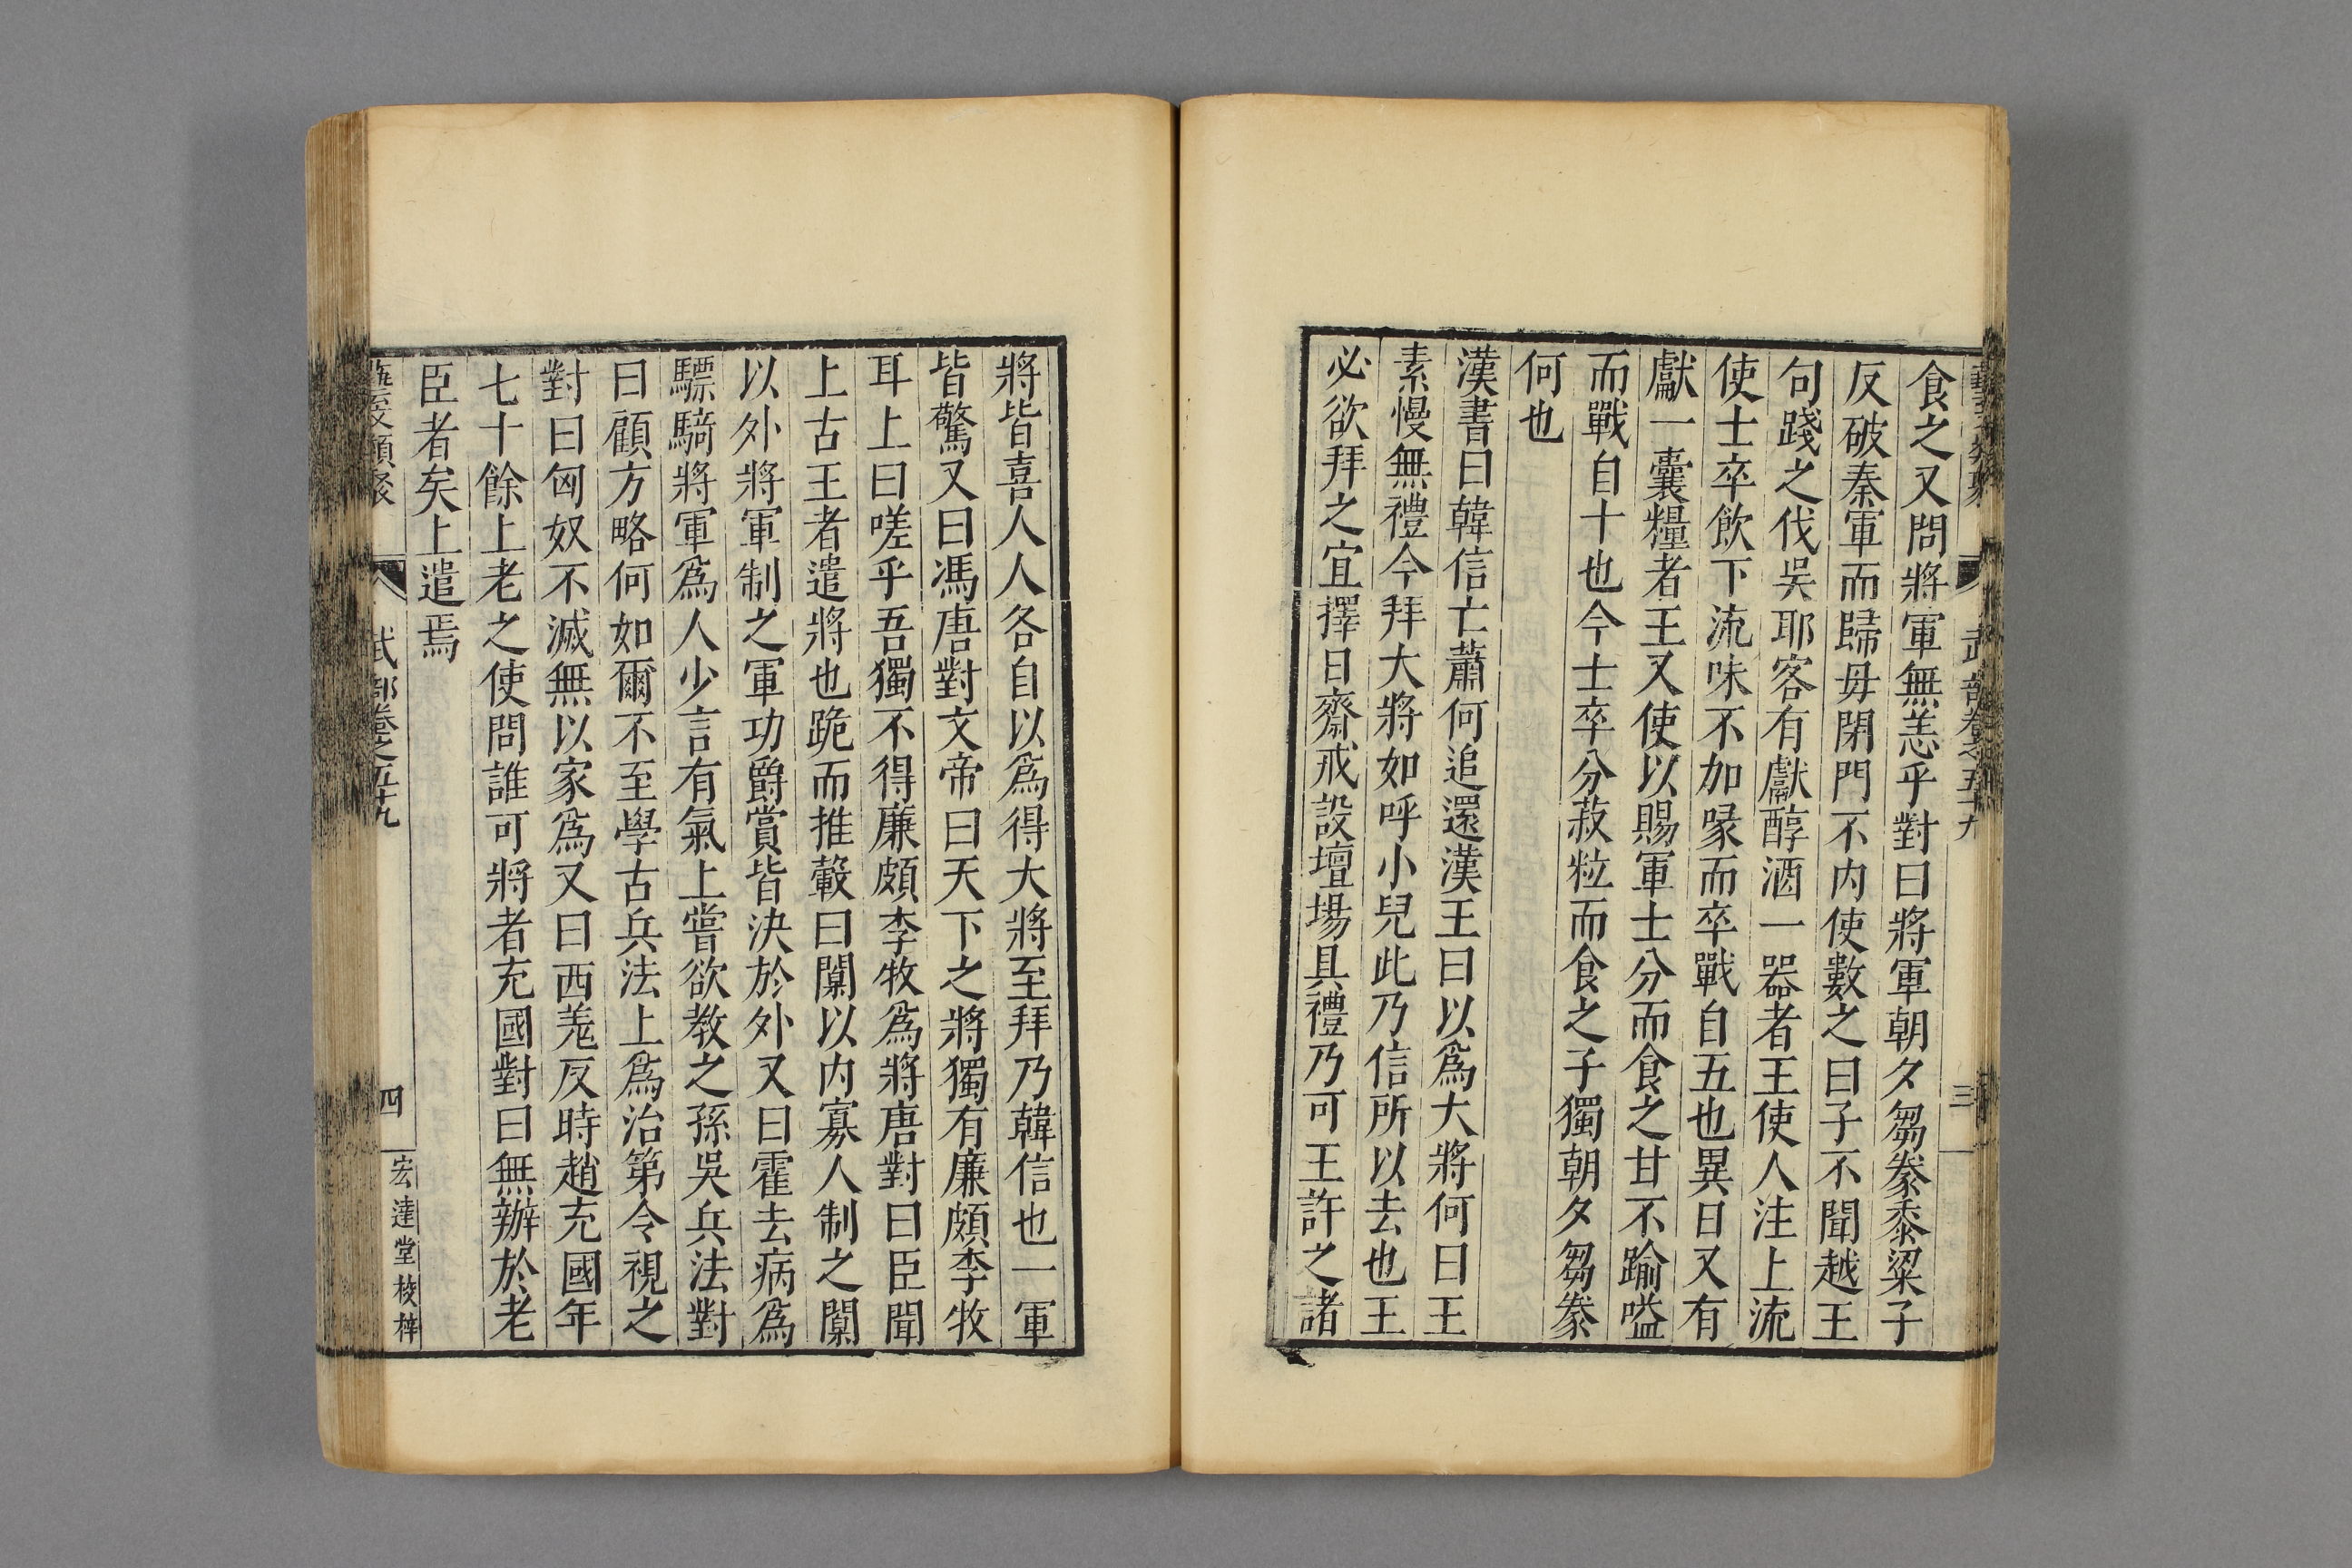 藝文類聚　武部卷之五十九　三
食之又問將軍無恙乎對曰將軍朝夕芻豢黍粱子
反破秦軍而歸毋閉門不內使數之曰子不聞越王
句踐之伐吳耶客有獻醇酒一器者王使人注上流
使士卒飲下流味不加喙而卒戰自五也異日又有
獻一囊糧者王又使以賜軍士分而食之甘不踰嗌
而戰自十也今士卒分菽粒而食之子獨朝夕芻豢
何也
漢書曰韓信亡蕭何追還漢王曰以爲大將何曰王
素慢無禮今拜大將如呼小兒此乃信所以去也王
必欲拜之宜擇日齋戒設壇場具禮乃可王許之諸
將皆喜人人各自以爲得大將至拜乃韓信也一軍
皆驚又曰馮唐對文帝曰天下之將獨有廉頗李牧
耳上曰嗟乎吾獨不得廉頗李牧爲將唐對曰臣聞
上古王者遣將也跪而推轂曰闑以內寡人制之闑
以外將軍制之軍功爵賞皆決於外又曰霍去病爲
驃騎將軍爲人少言有氣上嘗欲教之孫吳兵法對
曰顧方略何如爾不至學古兵法上爲治第令視之
對曰匈奴不滅無以家爲又曰西羗反時趙充國年
七十餘上老之使問誰可將者充國對曰無辦於老
臣者矣上遣焉
藝文類聚　武部卷之五十九　四　宏達堂校梓